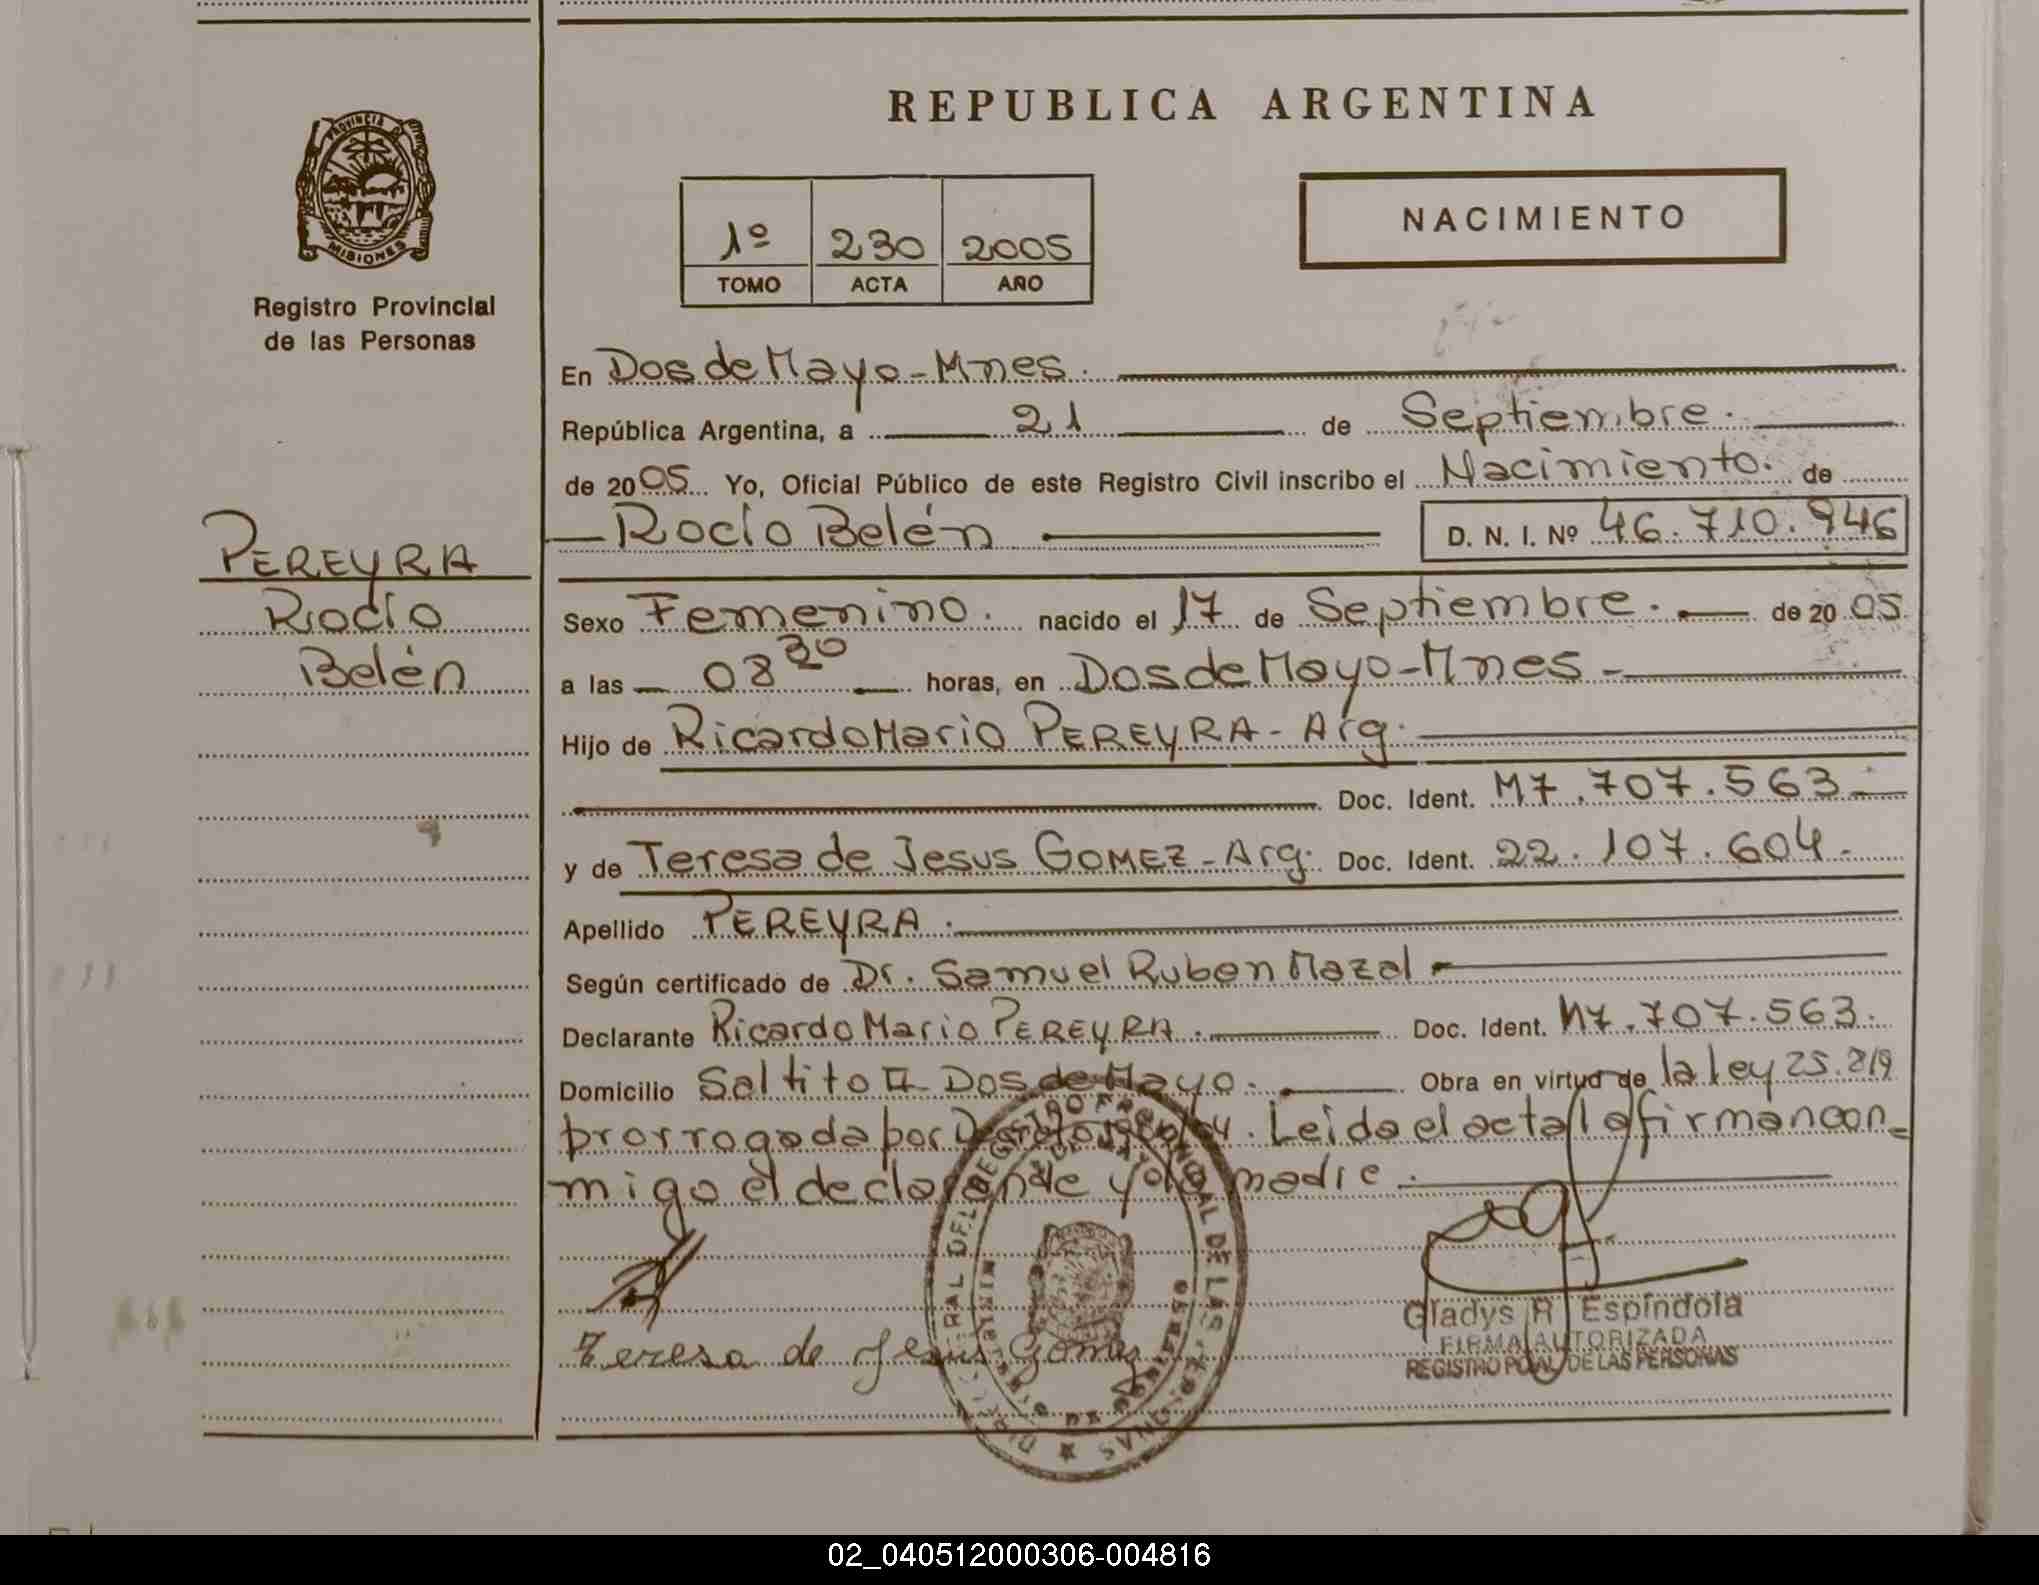 REPUBLICA ARGENTINA
PROVINCIA DE
MISIONES
Registro Provincial
de las Personas
1º 230 2005
TOMO ACTA AÑO
NACIMIENTO
En Dos de Mayo - Mnes.
República Argentina, a 21 de Septiembre.
de 2005 Yo, Oficial Público de este Registro Civil inscribo el Nacimiento. de
Rocío Belén D. N. I. Nº 46.710.946
PEREYRA
Rocío
Belén
Sexo Femenino. nacido el 17 de Septiembre. de 2005
a las 08 30 horas, en Dos de Mayo - Mnes -
Hijo de Ricardo Mario PEREYRA - Arg.
Doc. Ident. M7.707.563.-
y de Teresa de Jesus GOMEZ - Arg. Doc. Ident. 22.107.604.-
Apellido PEREYRA.
Según certificado de Dr. Samuel Ruben Mazal
Declarante Ricardo Mario PEREYRA. Doc. Ident. M7.707.563.
Domicilio Saltito II - Dos de Mayo. Obra en virtud de la ley 25.819
prorrogada por Decreto. Leida el acta la firman con-
migo el declarante y la madre.
Teresa de Jesus Gomez
Gladys R Espíndola
FIRMA AUTORIZADA
REGISTRO PCIAL DE LAS PERSONAS
02_040512000306-004816